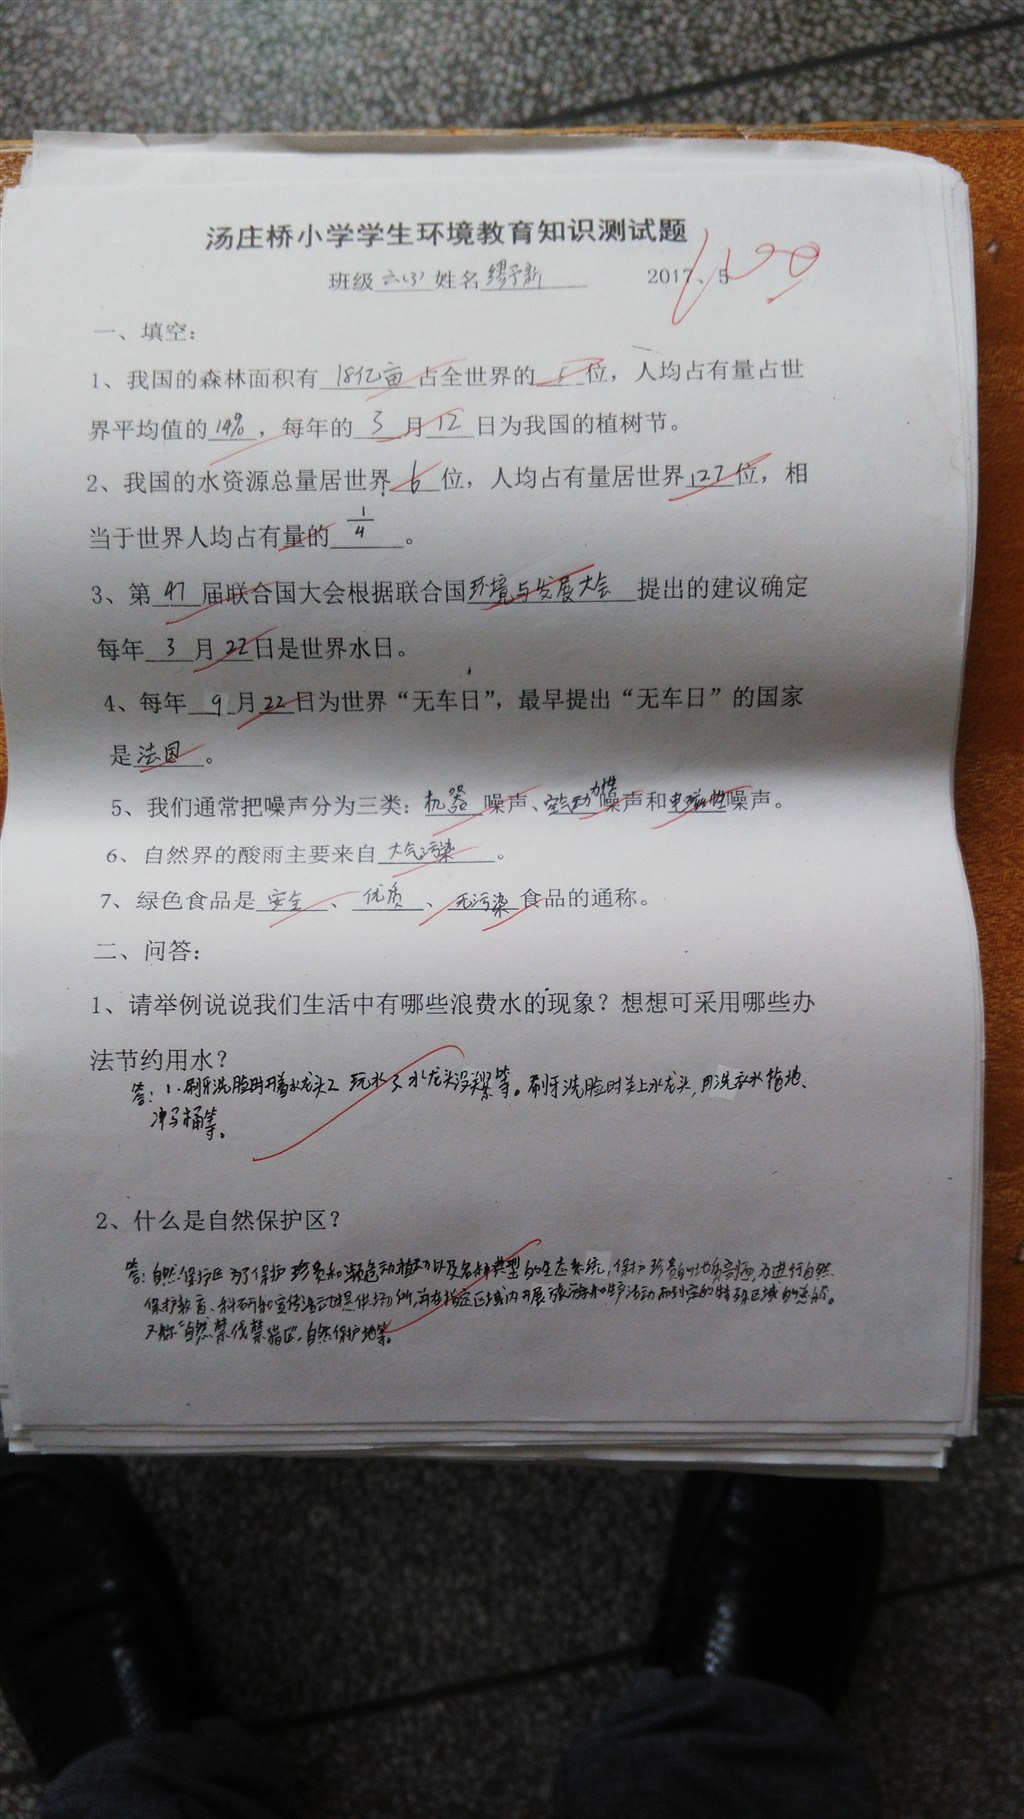 汤庄桥小学学生环境教育知识测试题
班级六(3)姓名缪予新 2017、5 100
一、填空：
1、我国的森林面积有18亿亩占全世界的5位，人均占有量占世
界平均值的14%，每年的3月12日为我国的植树节。
2、我国的水资源总量居世界6位，人均占有量居世界127位，相
当于世界人均占有量的1/4。
3、第47届联合国大会根据联合国环境与发展大会提出的建议确定
每年3月22日是世界水日。
4、每年9月22日为世界“无车日”，最早提出“无车日”的国家
是法国。
5、我们通常把噪声分为三类：机器噪声、空气动力性噪声和电磁性噪声。
6、自然界的酸雨主要来自大气污染。
7、绿色食品是安全、优质、无污染食品的通称。
二、问答：
1、请举例说说我们生活中有哪些浪费水的现象？想想可采用哪些办
法节约用水？
答：1.刷牙洗脸时开着水龙头2.玩水3.水龙头没关紧等。刷牙洗脸时关上水龙头，用洗衣水拖地、
冲马桶等。
2、什么是自然保护区？
答：自然保护区为了保护珍贵和濒危动植物以及各种典型的生态系统，保护珍贵的地质剖面，为进行自然
保护教育、科研和宣传活动提供场所，并在指定区域内开展旅游和生产活动而划定的特殊区域的总称。
又称“自然禁伐禁猎区”，自然保护地等。